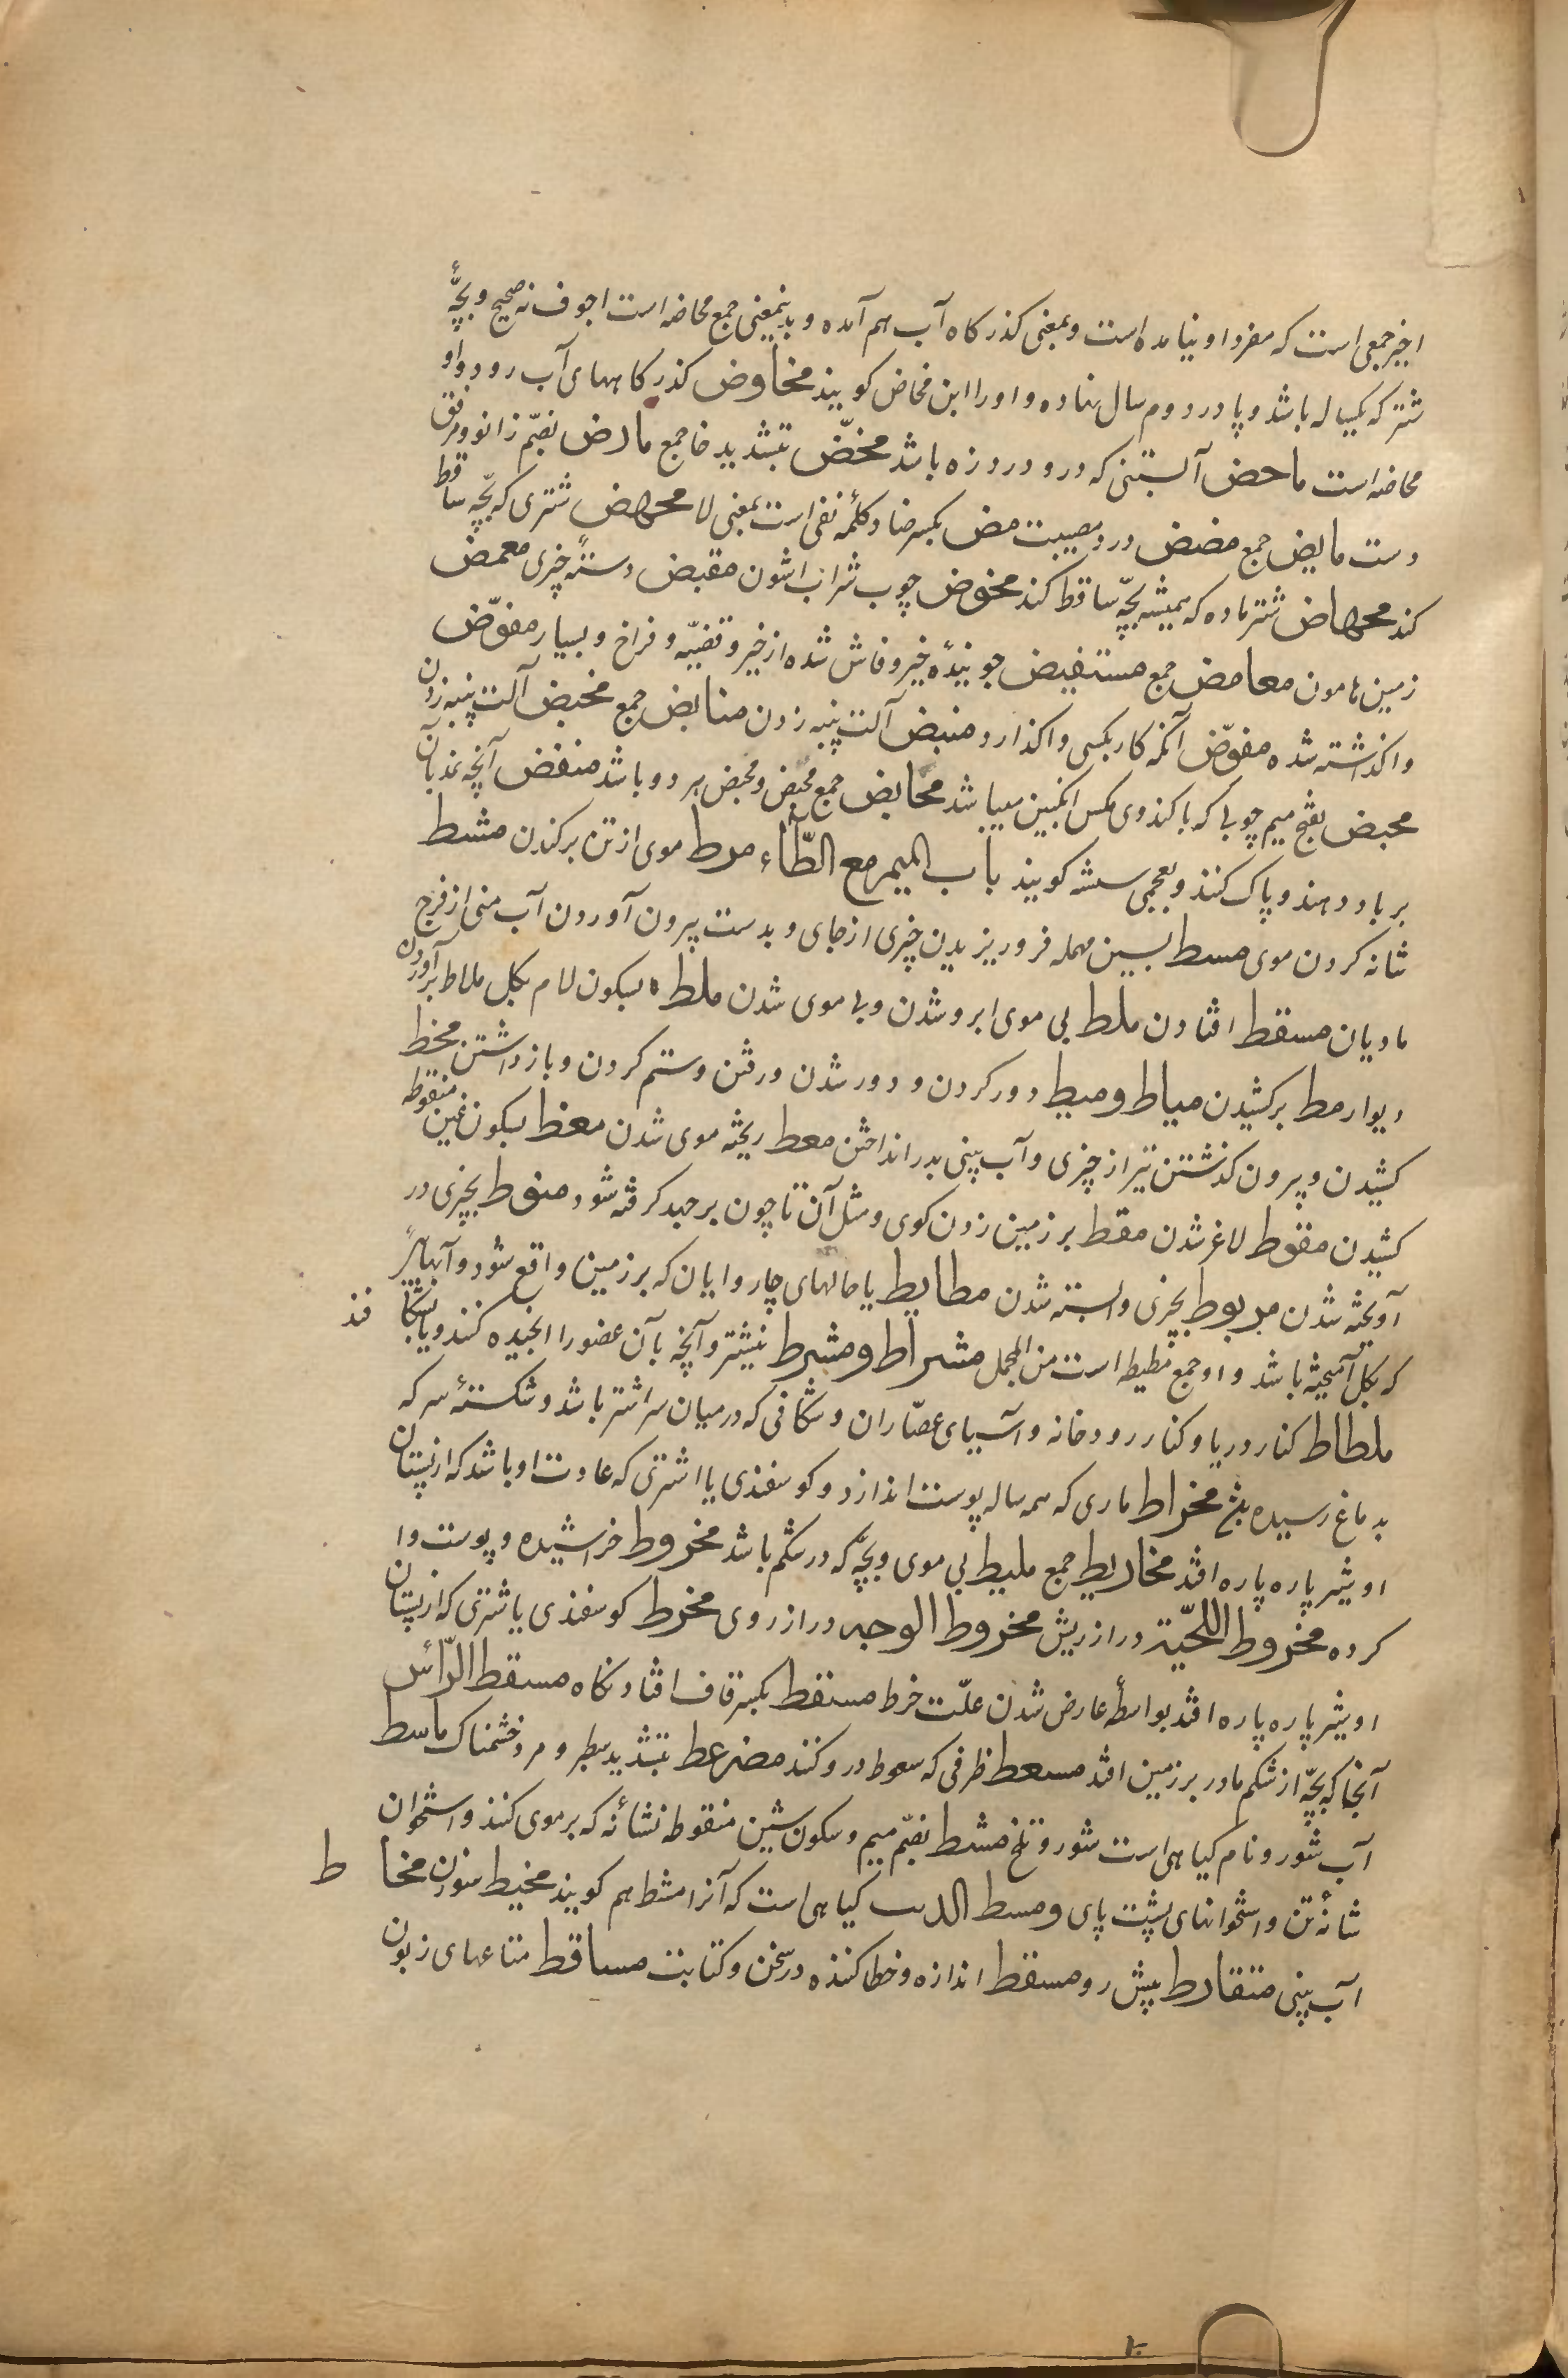 اخیر جمعی است که مفرد او نیامده است و بمعنی کذرکاه آب هم آمده و بدینمعنی جمع مخاضه است اجوف نه صحیح و بچّهٔ
شتر که یکساله باشد و پا در دوم سال نهاده و او را ابن مخاض کویند مخاوض کذرکاههای آب رود و او
مخاضه است ماحض آبستنی که در و درد زه باشد مخضّ بتشدید ضا جمع مارض بضمّ زانو و مرفق
دست مایض جمع مضض درد و مصیبت مض بکسر ضاد کلمهٔ نفی است بمعنی لا مجهض شتری که بچّه ساقط
کند مجهاض شتر ماده که همیشه بچّه ساقط کند مخوض چوب شراب اشون مقبض دستهٔ چیزی معمض
زمین هامون معامض جمع مستفیض جویندهٔ خیر و فاش شده از خیر و قضیّه و فراخ و بسیار مفوّض
واکذاشته شده مفوّض آنکه کار بکسی واکذارد منبض آلت پنبه زدن منابض جمع مخبض آلت پنبه زدن
محبض بفتح میم چوبی که با کندوی مکس انکبین میباشد محابض جمع محبض و محبض هر دو باشد منفض آنچه غذ بآن
بر باد دهند و پاک کنند و بعجمی سشه کویند باب المیم مع الطّاء مرط موی از تن برکندن مشط
شانه کردن موی مسط بسین مهمله فروریزیدن چیزی از جای و بدست بیرون آوردن آب منی از فرج
مادیان مسقط افتادن ملط بی موی ابرو شدن و بی موی شدن ملط بسکون لام بکل ملاط برآوردن
دیوار مط برکشیدن میاط و میط دور کردن و دور شدن و رفتن و ستم کردن و بازداشتن مخط
کشیدن و بیرون کذشتن تیر از چیزی و آب بینی بدر انداختن معط ریخته موی شدن مغط بسکون غین منقوطه
کشیدن مقوط لاغر شدن مقط بر زمین زدن کوی و مثل آن تا چون برجهد کرفته شود منوط بچیزی در
آویخته شدن مربوط بچیزی وابسته شدن مطایط پا مالهای چاروایان که بر زمین واقع شود و آنها
که بکل آمیخته باشد و او جمع مطیطه است من المجمل مشراط و مشرط نیشتر و آنچه بآن عضو را الجیده کنند و یا بشکافند
ملطاط کنار دریا و کنار رودخانه و آسیای عصّاران و شکافی که در میان سر اشتر باشد و شکستهٔ سر که
بدماغ رسیده بشج مخراط ماری که همه ساله پوست اندازد و کوسفندی یا اشتری که عادت او باشد که از پستان
او شیر پاره پاره افتد مخاریط جمع ملیط بی موی و بچّه که در شکم باشد مخروط خراشیده و پوست وا
کرده مخروط اللحّیة دراز ریش مخروط الوجه دراز روی مخرط کوسفندی یا شتری که از پستان
او شیر پاره پاره افتد بواسطهٔ عارض شدن علّت خرط مسقط بکسر قاف افتادنکاه مسقط الرّأس
آنجا که بچّه از شکم مادر بر زمین افتد مسعط ظرفی که سعوط در و کنند مضرغط بتشدید سطبر و مرد خشمناک ماسط
آب شور و نام کیاهی است شور و تلخ مشط بضمّ میم و سکون شین منقوطه نشانهٔ که بر موی کنند و استخوان
شانهٔ تن و استخوانهای پشت پای و مسط الدب کیاهی است که آنرا مشط هم کویند مخیط سوزن مخاط
آب بینی متقارط پیش رو مسقط اندازه و خطا کننده در سخن و کتابت مساقط متاعهای زبون